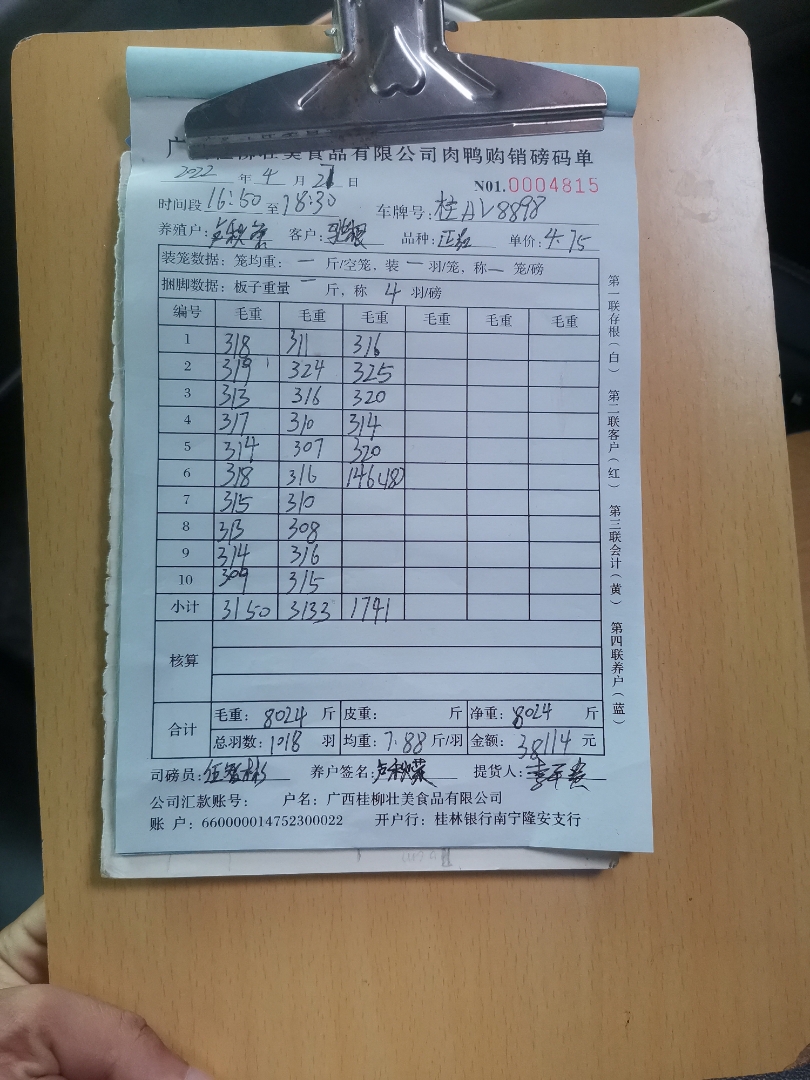 柳壮美食品有限公司肉鸭购销磅码单
2022 年 4 月 21 日 N01.0004815
时间段 16:50 至 18:30 车牌号: 桂AV8898
养殖户: 客户: 品种: 单价: 4.75
装笼数据: 笼均重: 一 斤/空笼, 装 一 羽/笼, 称 一 笼/磅
捆脚数据: 板子重量 一 斤, 称 4 羽/磅
编号 毛重 毛重 毛重 毛重 毛重 毛重
1 318 311 316
2 319 324 325
3 313 316 320
4 317 310 314
5 314 307 320
6 318 316 146(18)
7 315 310
8 313 308
9 314 316
10 309 315
小计 3150 3133 1741
核算
合计 毛重: 8024 斤 皮重: 斤 净重: 8024 斤
总羽数: 1018 羽 均重: 7.88 斤/羽 金额: 38114 元
司磅员: 养户签名: 提货人:
公司汇款账号: 户名: 广西桂柳壮美食品有限公司
账 户: 660000014752300022 开户行: 桂林银行南宁隆安支行
第一联存根(白) 第二联客户(红) 第三联会计(黄) 第四联养户(蓝)